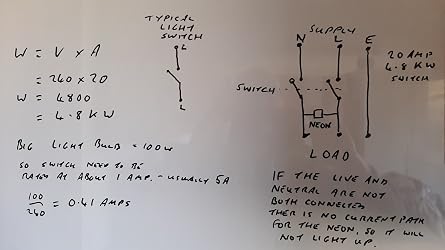 TYPICAL
LIGHT
SWITCH
L
L
W = V X A
= 240 X 20
W = 4800
= 4.8 KW
BIG LIGHT BULB = 100W
SO SWITCH NEED TO BE
RATED AT ABOUT 1 AMP. - USUALLY 5A
100
240
= 0.41 AMPS
SUPPLY
N L E
20 AMP
4.8 KW
SWITCH
SWITCH
NEON
LOAD
IF THE LIVE AND
NEUTRAL ARE NOT
BOTH CONNECTED
THER IS NO CURRENT PATH
FOR THE NEON, SO IT WILL
NOT LIGHT UP.